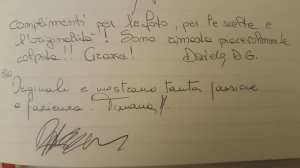 complimenti per le foto, per le scelte e
l'originalità!! Sono rimasta piacevolmente
colpita!! Grazie! Daniela D.G.
Originali e mostrano tanta passione
e pazienza. Tiziana